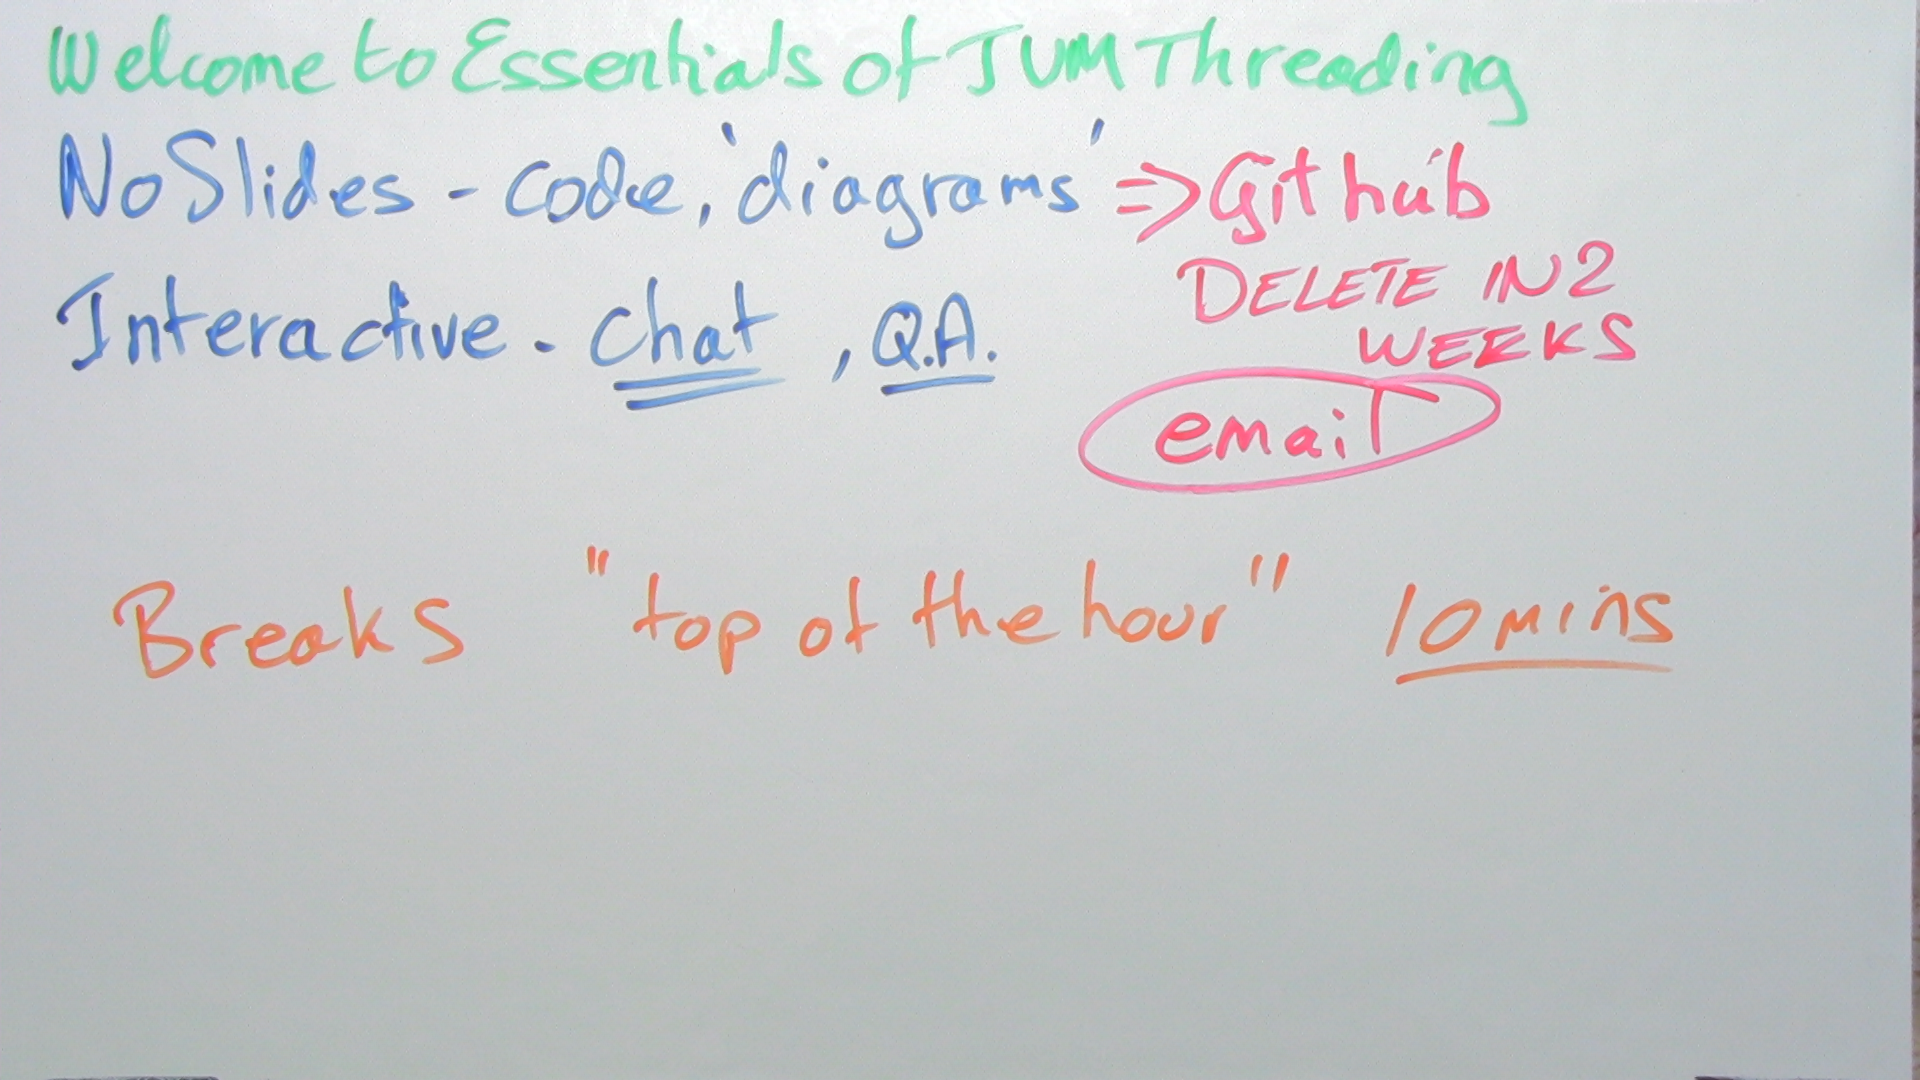 Welcome to Essentials of JVM Threading
No Slides - code, 'diagrams' => Github
DELETE IN 2
WEEKS
Interactive - chat, Q.A.
email
Breaks "top of the hour" 10 mins